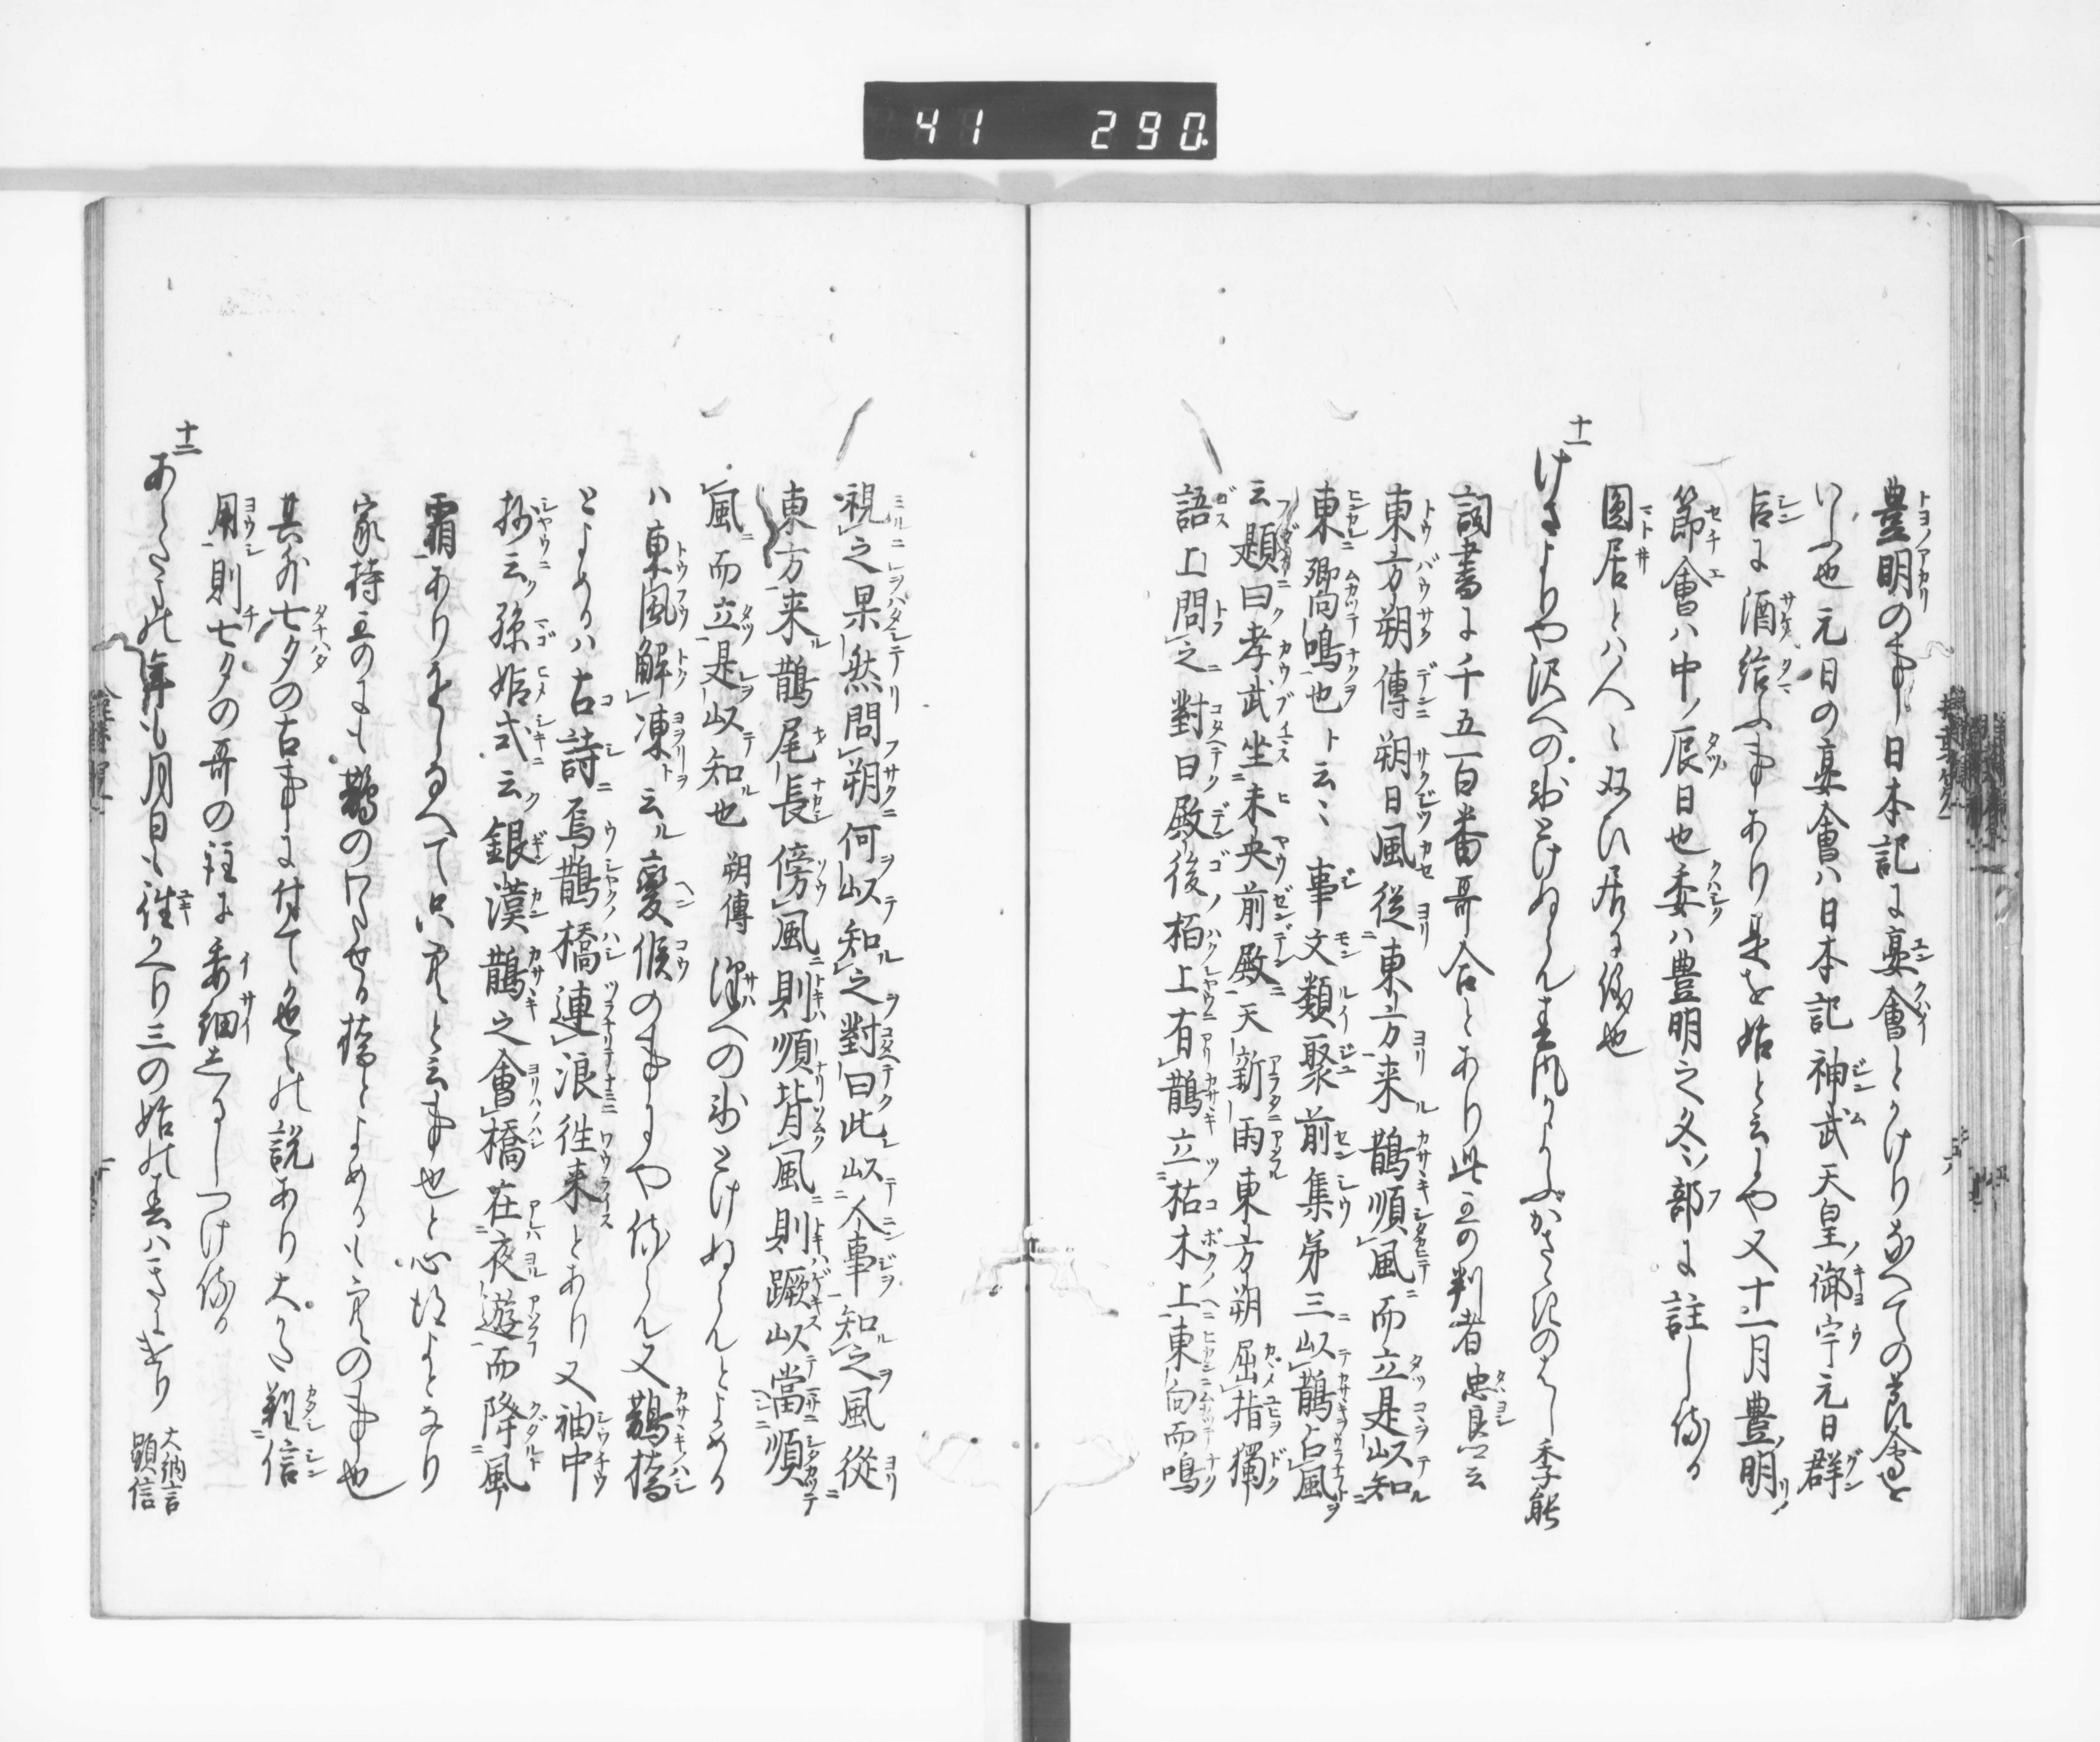 41 290
豊明の事日本記に宴會とかけりなへての節會を
いふ也元日の宴會ハ日本記神武天皇ノ御宇元日群
臣に酒給ふ事あり是を始と云々や又十一月豊明
節會ハ中ノ辰日也委ハ豊明之冬ノ部に註し侍る
圓居とハ人〻双ひ居る儀也
十一
けさよりや沢への氷とけぬらん春風かよふかさゝきのはし 季能
詞書に千五百番哥合とあり此哥の判者忠良云
東方朔傳朔曰風從東方来鵲順風而立是以知
東郷向鳴也ト云〻 事文類聚前集第三以鵲占風
云題曰孝武坐未央前殿天新雨東方朔屈指獨
語上問之對曰殿後栢上有鵲立枯木上東向而鳴
視之果然問朔何以知之對曰此以人事知之風從
東方来鵲尾長傍風則順背風則蹶以當順
風而立是以知也 朔傳 澤への氷とけぬらんとよめる
ハ東風解凍ト云ル變候の事にや侍らん又鵲橋
とよめるハ古詩烏鵲橋連浪往来とあり又袖中
抄云孫姫式云銀漢鵲之會橋在夜遊而降風
霜ありをしなへて只空と云事也と心得よとなり
家持哥のにも鵲のわたせる橋とよめるも空の事也
其外七夕の古事に付て色〻の説あり大かた難信
用則七夕の哥の註に委細しるしつけ侍る
十二
あらたまの年も月日も徃かへり三の始の春ハきにけり 大納言顕信